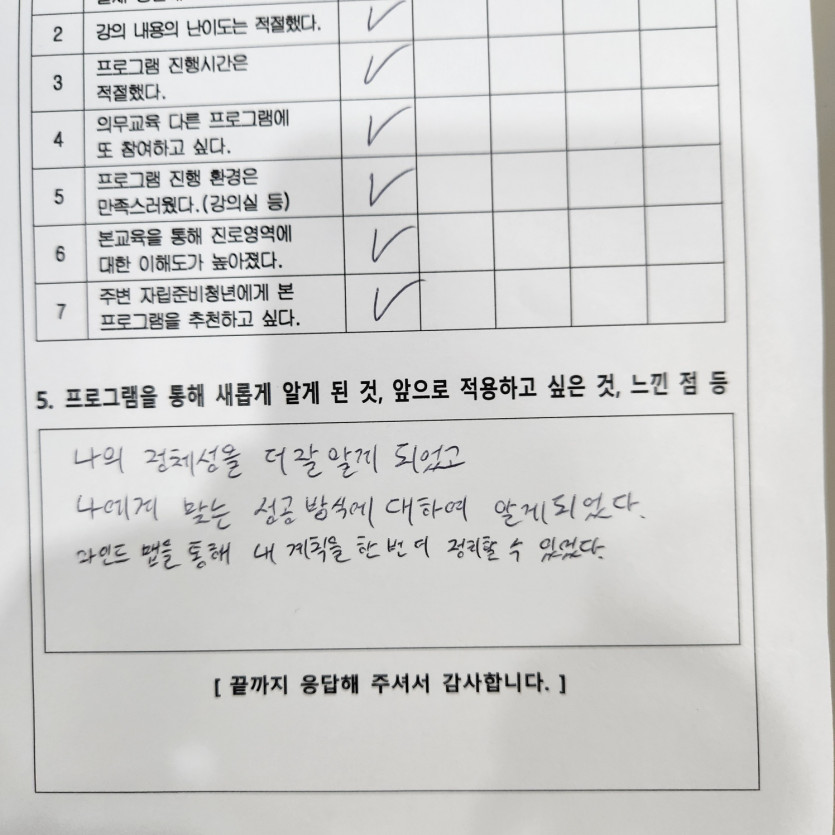 2 강의 내용의 난이도는 적절했다.
3 프로그램 진행시간은
적절했다.
4 의무교육 다른 프로그램에
또 참여하고 싶다.
5 프로그램 진행 환경은
만족스러웠다.(강의실 등)
6 본교육을 통해 진로영역에
대한 이해도가 높아졌다.
7 주변 자립준비청년에게 본
프로그램을 추천하고 싶다.
5. 프로그램을 통해 새롭게 알게 된 것, 앞으로 적용하고 싶은 것, 느낀 점 등
나의 정체성을 더 잘 알게 되었고
나에게 맞는 성공 방식에 대하여 알게 되었다.
마인드 맵을 통해 내 계획을 한 번 더 정리할 수 있었다.
[ 끝까지 응답해 주셔서 감사합니다. ]